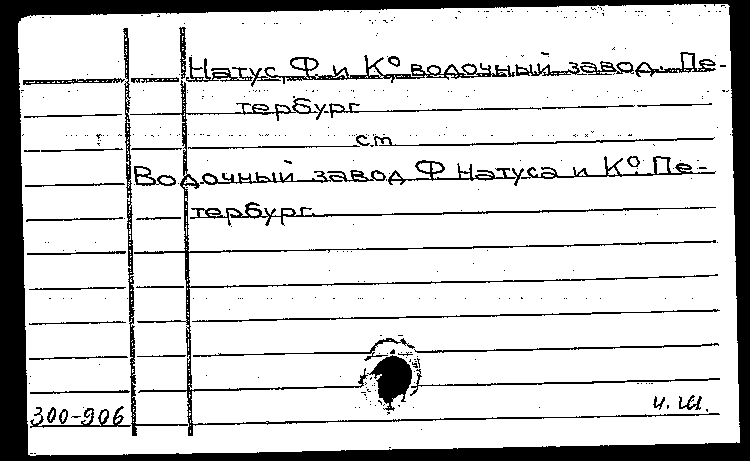 Натус, Ф. и К⁰, водочный завод. Пе-
тербург
см
Водочный завод Ф Натуса и К⁰. Пе-
тербург.
300-906
и. ш.